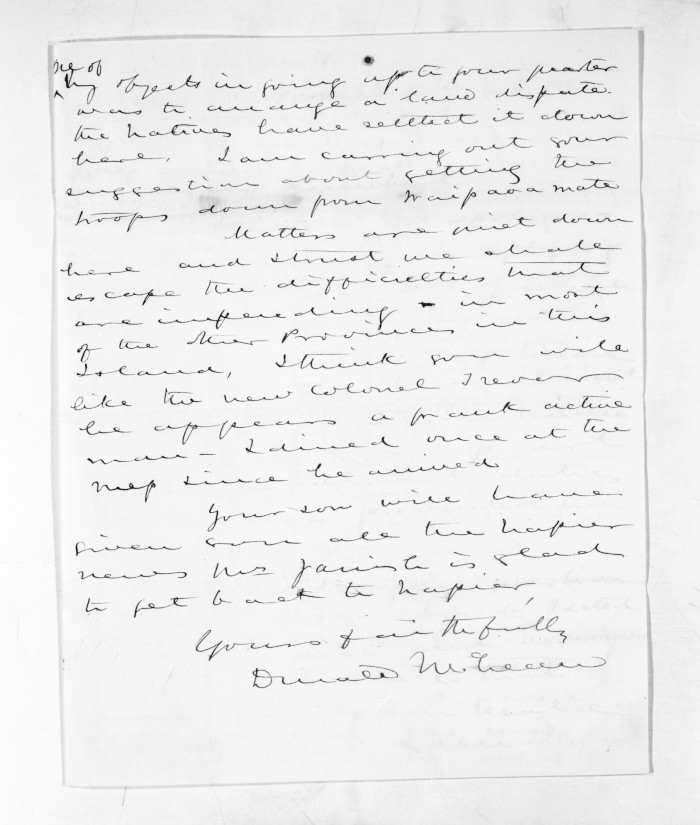 ne of
my objects in going up to your quarter
was to arrange a land dispute.
the Natives have settled it down
here. I am carrying out your
suggestion about getting the
troops down from Waipawamate
Matters are quiet down
here and I trust we shall
escape the difficulties that
are impending - in most
of the other Provinces in this
Island, I think you will
like the new Colonel Trevor
he appears a frank active
man - I dined once at the
mess since he arrived
Your son will have
given you all the Napier
news Mrs is glad
to get back to Napier,
Yours faithfully
Donald McLean